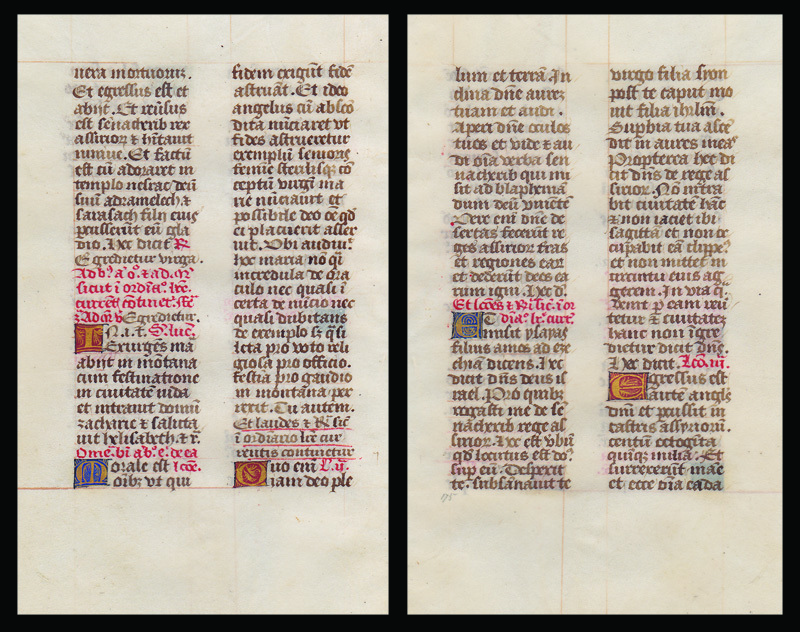 uera mortuorum.
Et egressus est et
abijt. Et reuersus
est senacherib rex
assirior et habitauit
niniue. Et factum
est cum adoraret in
templo nesrac deum
suum adramelech et
sarasach filij eius
percusserunt eum gla
dio. Hec dicit R
Egredietur virga.
sicut in ordinario
Egredietur.
In illo tempore
Exurgens ma
abijt in montana
cum festinatione
in ciuitatem iuda
et intrauit domum
zacharie et saluta
uit helisabeth et r.
Morale est
omnibus vt qui
fidem exigunt fidem
astruant. Et ideo
angelus cum abscon
dita nunciaret vt
fides astrueretur
exemplum senioris
femine sterilisque con
ceptum virgini ma
rie nunciauit vt
possibile deo omne quod
ei placuerit asser
uit. Vbi audiuit
hec maria non quasi
incredula de ora
culo nec quasi in
certa de nuncio nec
quasi dubitans
de exemplo sed quasi
leta pro voto reli
giosa pro officio.
festina pro gaudio
in montana per
rexit. Tu autem.
Et laudes et
in ordinario
continetur
Quo enim
iam deo ple
lum et terram. In
clina domine aurem
tuam et audi.
Aperi domine oculos
tuos et vide et au
di omnia verba sen
nacherib qui mi
sit ad blapheman
dum deum viuentem
Vere enim domine de
sertas fecerunt re
ges assirior terras
et regiones earum
et dederunt deos ea
rum igni. Hec dicit
Et
misit ysayas
filius amos ad eze
chiam dicens. Hec
dicit dominus deus is
rael. Pro quibus
rogasti me de se
nacherib rege as
sirior. Hec est verbum
quod locutus est dominus
super eum. Despexit
te. subsannauit te
virgo filia syon
post te caput mo
uit filia iherusalem.
Superbia tua ascen
dit in aures meas
Propterea hec di
cit dominus de rege as
sirior. Non intra
bit ciuitatem hanc
et non iaciet ibi
sagittam et non oc
cupabit eam clippeus
et non mittet in
circuitu eius ag
gerem. In via qua
venit per eam reuer
tetur et ciuitatem
hanc non ingre
dietur dicit dominus.
Hec dicit. Leo. iij.
Egressus est
autem angelus
domini et percussit in
castris assyriorum
centum octoginta
quinque milia. Et
surrexerunt mane
et ecce omnia cada
175